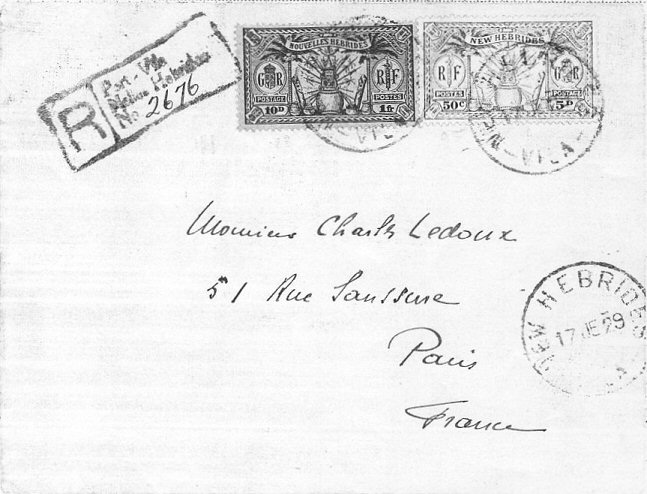 R
Port-Vila
New Hebrides
No 2676
NOUVELLES HÉBRIDES
G R
R F
POSTAGE
POSTES
10D
1 fr
NEW HEBRIDES
R F
G R
POSTES
POSTAGE
50c
5D
VILA
Monsieur Charles Ledoux
51 Rue Saussure
Paris
France
NEW HEBRIDES
29